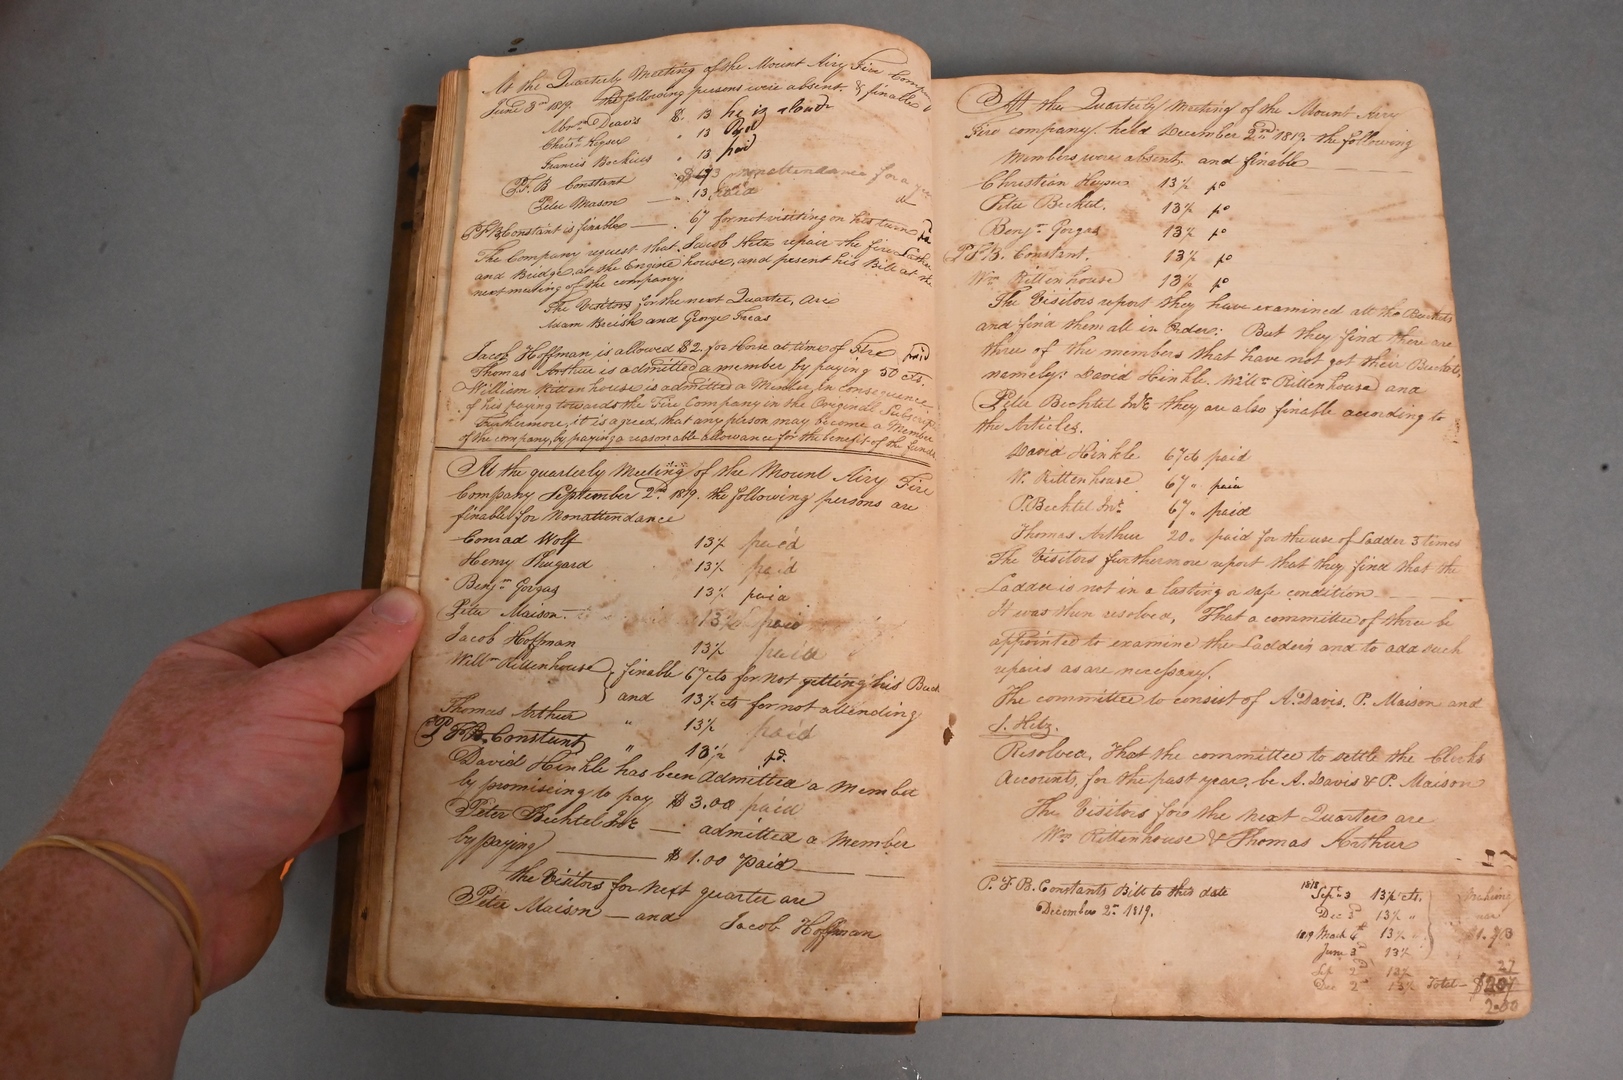 At the Quarterly Meeting of the Mount Airy Fire Comp
June 3rd 1819. The following persons were absent. & finable
Abrm Deavs $. 13 he is
Christn Keyser " 13 Pd
Francis Bockius " 13 paid
P.F.B Constant 13 nonattendance for a
Peter Mason — " 13
P.F.B Constant is finable — . 67 for not visiting on his turn
The Company request that Jacob Hitz repair the fire Ladder
and Bridge, at the Engine house, and present his Bill at the
next meeting of the company.
The Visitors for the next Quarter, are
Adam Breish and George Freas
Jacob Hoffman is allowed $2. for Horse at time of Fire paid
Thomas Arthur is admitted a member by paying 50 cts.
William Rittenhouse is admitted a Member, in consequence
of his paying towards the Fire Company in the Original Subscrip
Furthermore, it is agreed, that any person may become a Member
of the company, by paying a reasonable allowance for the benefit of the funds
At the quarterly Meeting of the Mount Airy Fire
Company September 2d 1819. the following persons are
finable for Nonattendance
Conrad Wolf 13½ paid
Henry Shugard 13½ paid
Benjn Gorgas 13½ paid
Peter Maison. 13½ paid
Jacob Hoffman 13½ paid
Willm Rittenhouse } finable 67 cts for not getting his Buck
and 13½ cts for not attending
Thomas Arthur " 13½ paid
P.F.B. Constant " 13½ pd.
David Hinkle has been Admitted a Member
by promiseing to pay $3.00 paid
Peter Bechtel Jnr — . admitted a Member
by paying — $1.00 paid —
the Visitors for next quarter are
Peter Maison — and Jacob Hoffman
At the Quarterly Meeting of the Mount Airy
Fire company. held December 2nd 1819. the following
Members were absent. and finable
Christian Keyser 13½ pd
Peter Bechtel. 13½ pd
Benjn Gorgas 13½ pd
P.F.B. Constant. 13½ pd
Wm Rittenhouse 13½ pd
The Visitors report they have examined all the Buckets
and find them all in Order: But they find there are
three of the members that have not got their Buckets,
namely: David Hinkle. Willm Rittenhouse and
Peter Bechtel Jnr they are also finable acording to
the Articles.
David Hinkle 67 cts paid
W. Rittenhouse 67 " paid
P. Bechtel Jnr 67 " paid
Thomas Arthur 20 " paid for the use of Ladder 3 times
The Visitors furthermore report that they find that the
Ladder is not in a lasting & safe condition — —
It was then resolved, That a committee of three be
appointed to examine the Ladders and to add such
repairs as are necessary.
The committee to consist of A. Davis, P. Maison and
J. Hitz.
Resolved, That the committee to settle the Clerks
Accounts, for the past year, be A. Davis & P. Maison
The Visitors for the next Quarter are
Wm Rittenhouse & Thomas Arthur
P.F.B. Constants Bill to this date 1818 Sept 3 13½ cts. making
December 2d 1819. Dec 3 13½ "
1819 March 4th 13½
June 3d 13½
Sep 2d 13½ 27
Dec 2d 13½ Total —
2.00